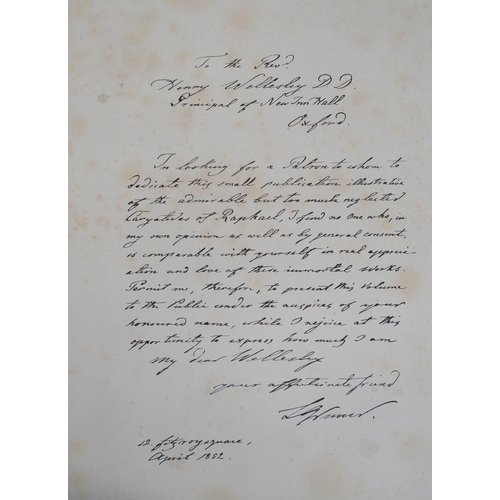 To the Revd.
Henry Wellesley D D.
Principal of New Inn Hall
Oxford.
In looking for a Patron to whom to
dedicate this small publication illustrative
of the admirable but too much neglected
Caryatides of Raphael, I find no one who, in
my own opinion as well as by general consent,
is comparable with yourself in real appreci-
ation and love of these immortal works.
Permit me, therefore, to present this Volume
to the Public under the auspices of your
honoured name, while I rejoice at this
opportunity to express how much I am
My dear Wellesley
your affectionate friend
L Gruner.
12. fitzroysquare,
April 1852.